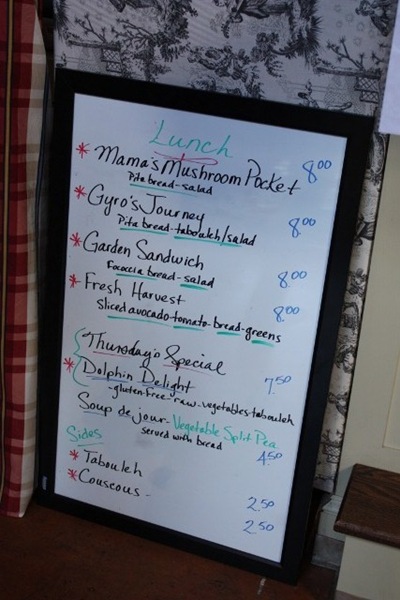 Lunch
* Mama's Mushroom Pocket 8.00
Pita bread - salad
* Gyro's Journey 8.00
Pita bread - tabouleh/salad
* Garden Sandwich 8.00
Focaccia bread - salad
* Fresh Harvest 8.00
Sliced avocado - tomato - bread - greens
Thursday's Special
* Dolphin Delight 7.50
- gluten-free - raw - vegetables - tabouleh
Soup de jour - Vegetable Split Pea
served with bread 4.50
Sides
* Tabouleh 2.50
* Couscous - 2.50